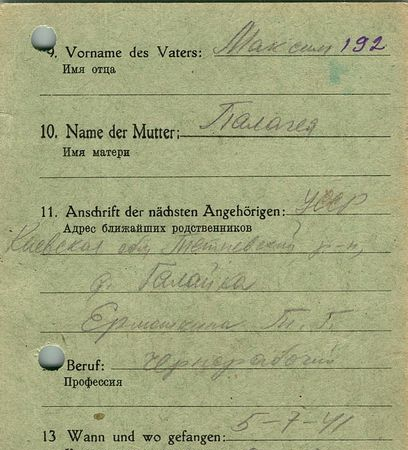 9. Vorname des Vaters: Максим 192
Имя отца
10. Name der Mutter: Палагея
Имя матери
11. Anschrift der nächsten Angehörigen: УССР
Адрес ближайших родственников
Киевская обл Тетиевский р-н,
д. Галайка
Ермошкина Т. Г.
Beruf: чернорабочий
Профессия
5-7-41
13 Wann und wo gefangen: